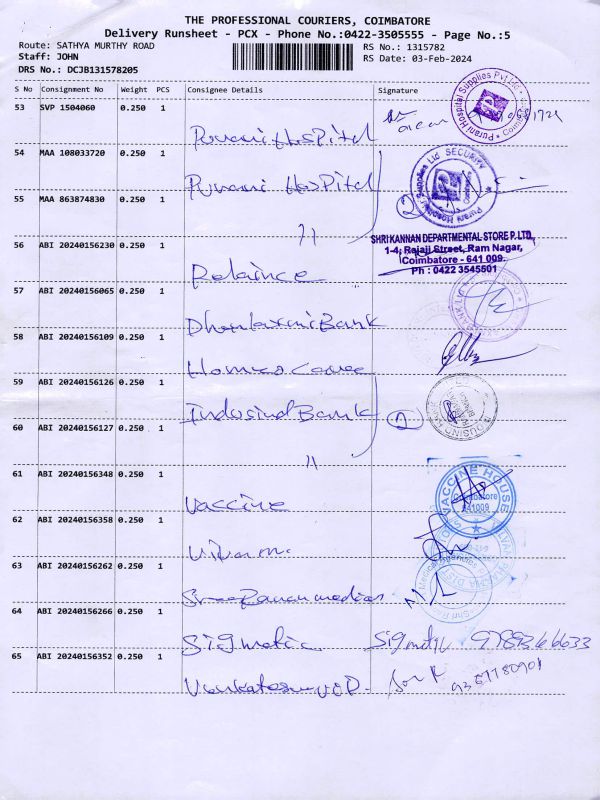 THE PROFESSIONAL COURIERS, COIMBATORE
Delivery Runsheet - PCX - Phone No.:0422-3505555 - Page No.:5
Route: SATHYA MURTHY ROAD
RS No.: 1315782
Staff: JOHN
RS Date: 03-Feb-2024
DRS No.: DCJB131578205
S No Consignment No Weight PCS Consignee Details Signature
53 SVP 1504060 0.250 1
Purani Hospital
54 MAA 108033720 0.250 1
Purani Hospital
55 MAA 863874830 0.250 1
SHRI KANNAN DEPARTMENTAL STORE P.LTD.,
1-4, Rajaji Street, Ram Nagar,
Coimbatore - 641 009.
Ph : 0422 3545501
56 ABI 20240156230 0.250 1
Relaince
57 ABI 20240156065 0.250 1
Dhanlaxmi Bank
58 ABI 20240156109 0.250 1
59 ABI 20240156126 0.250 1
Indusind Bank
60 ABI 20240156127 0.250 1
61 ABI 20240156348 0.250 1
Vaccine
VACCINE HOUSE
Coimbatore
641009
62 ABI 20240156358 0.250 1
63 ABI 20240156262 0.250 1
64 ABI 20240156266 0.250 1
65 ABI 20240156352 0.250 1